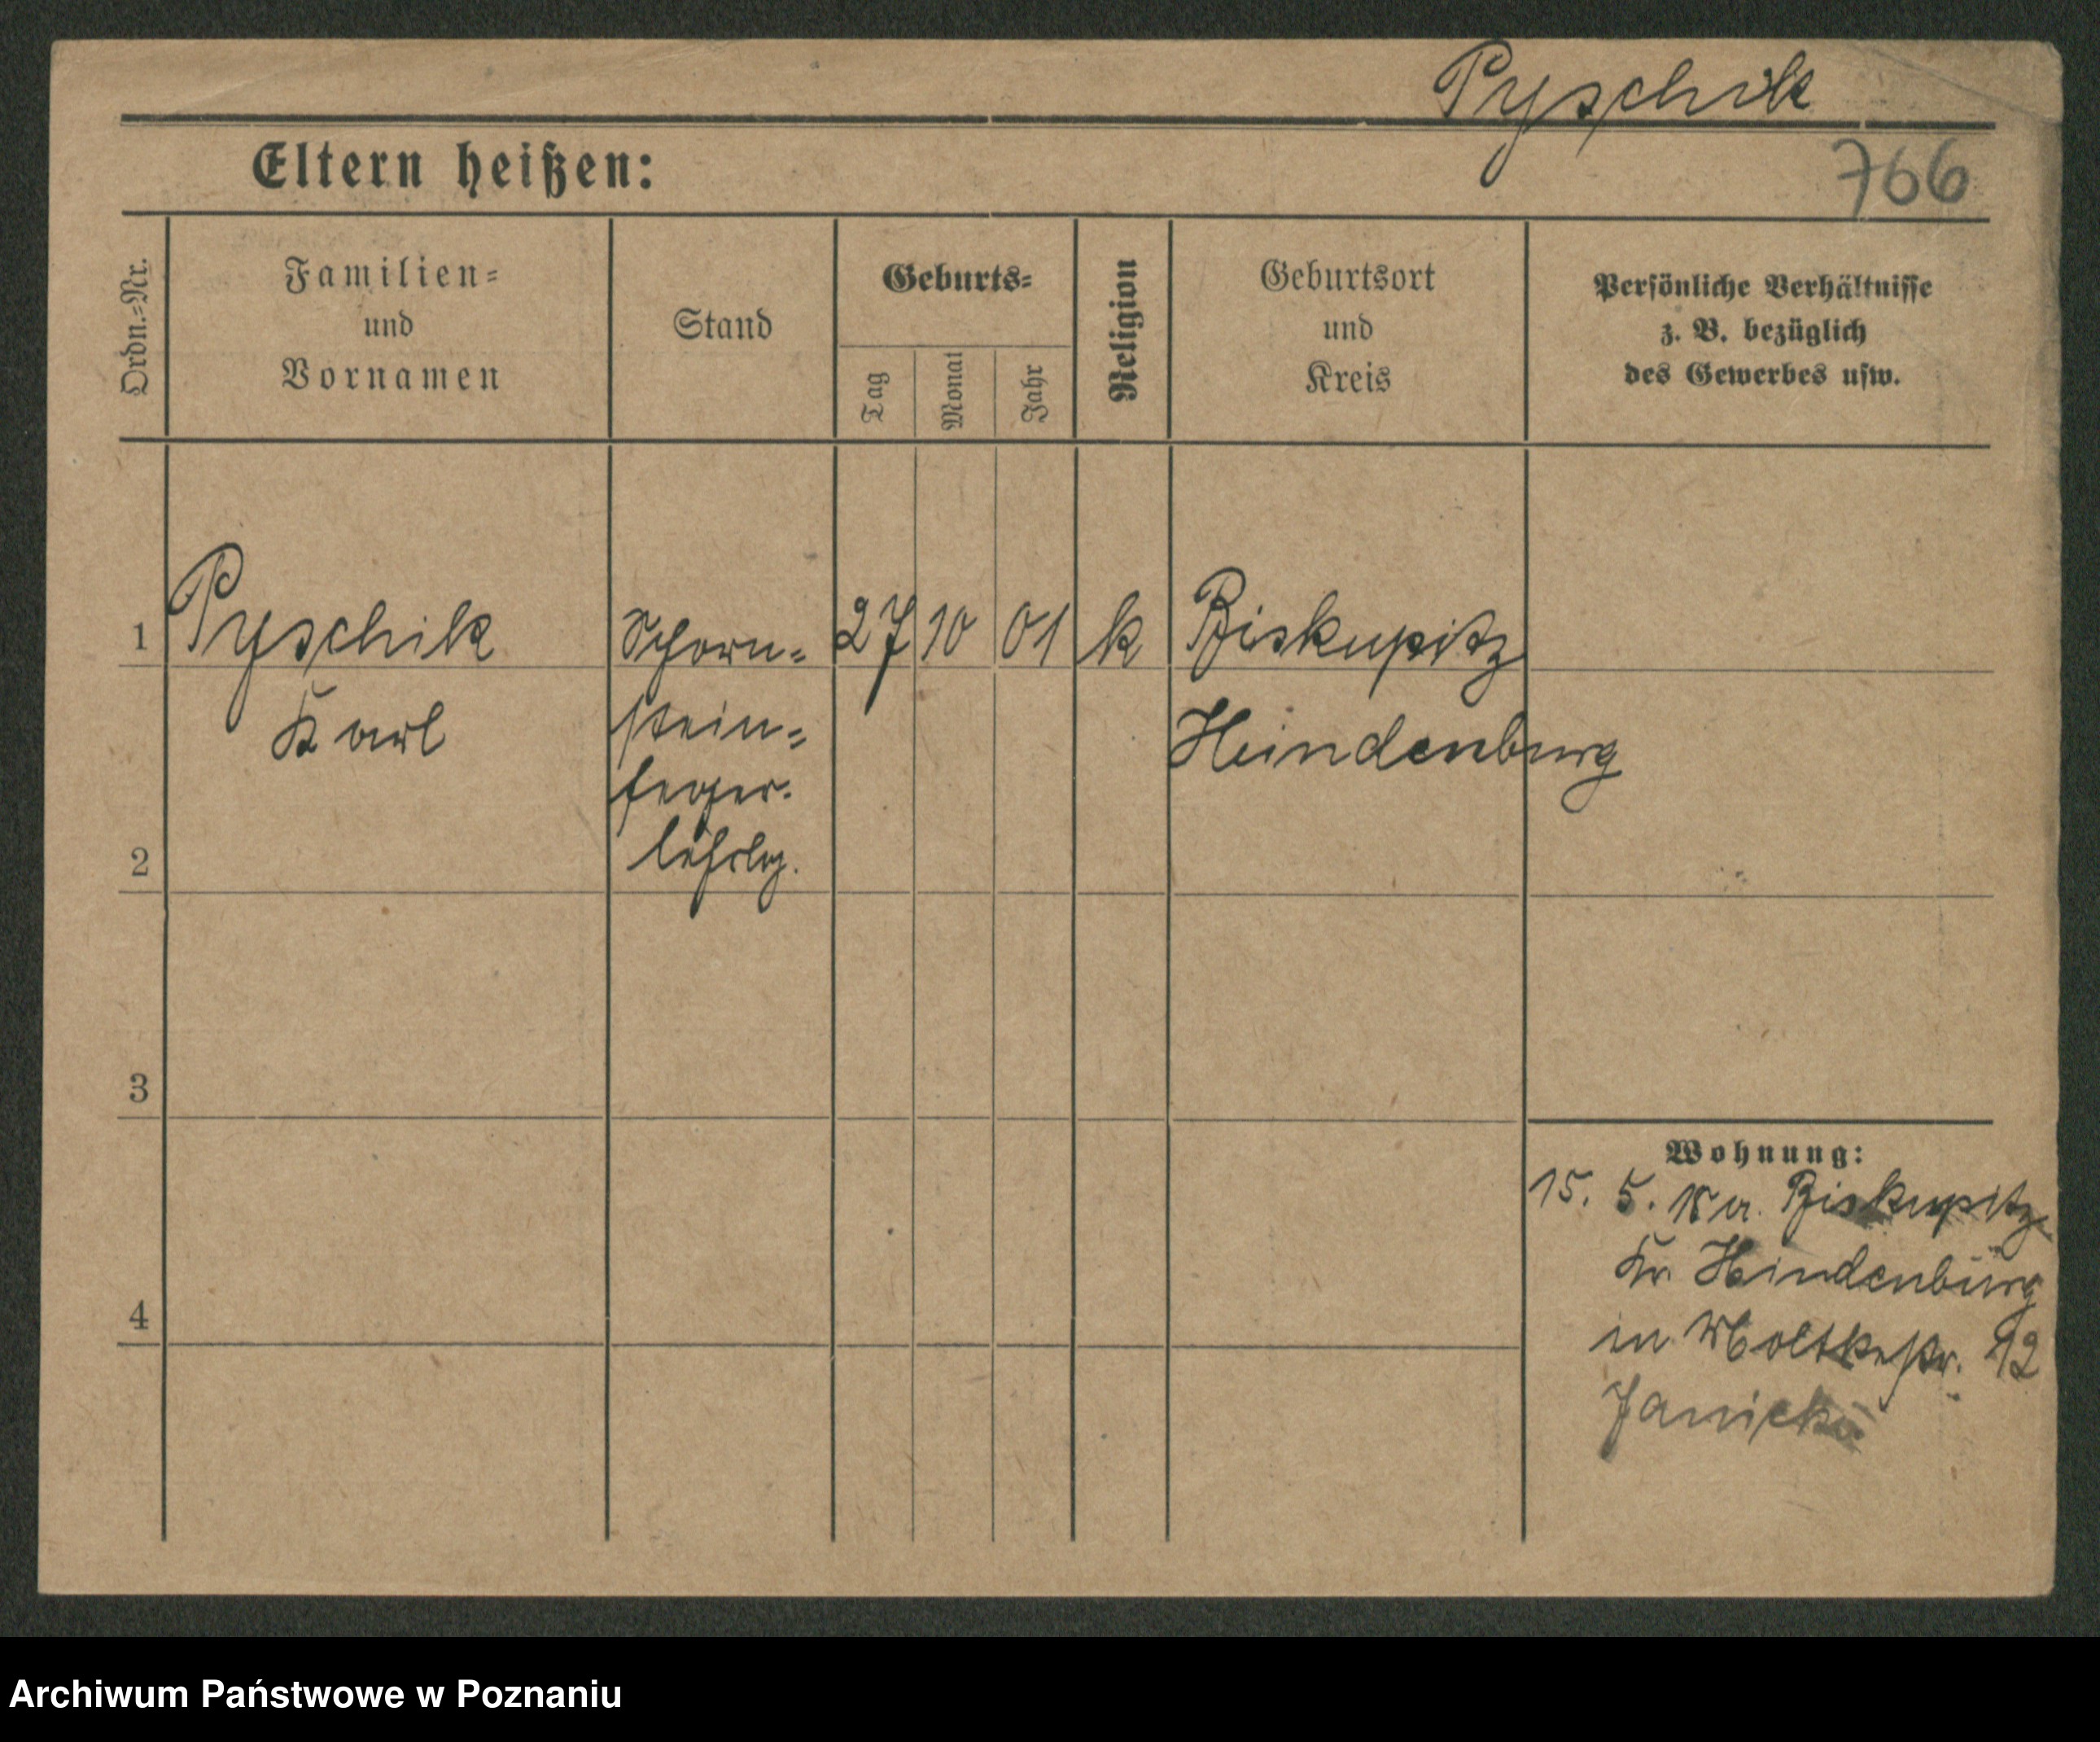 Pyschik
Eltern heißen:
766
Ordn.-Nr.
Familien-
und
Vornamen
Stand
Geburts-
Tag
Monat
Jahr
Religion
Geburtsort
und
Kreis
Persönliche Verhältnisse
z. B. bezüglich
des Gewerbes usw.
1
Pyschik
Karl
Schorn-
stein-
feger-
lehrlg.
27
10
01
k
Biskupitz
Hindenburg
2
3
4
Wohnung:
15. 5. 18 a. Biskupitz
Kr. Hindenburg
in Moltkestr. 12
Janicki
Archiwum Państwowe w Poznaniu